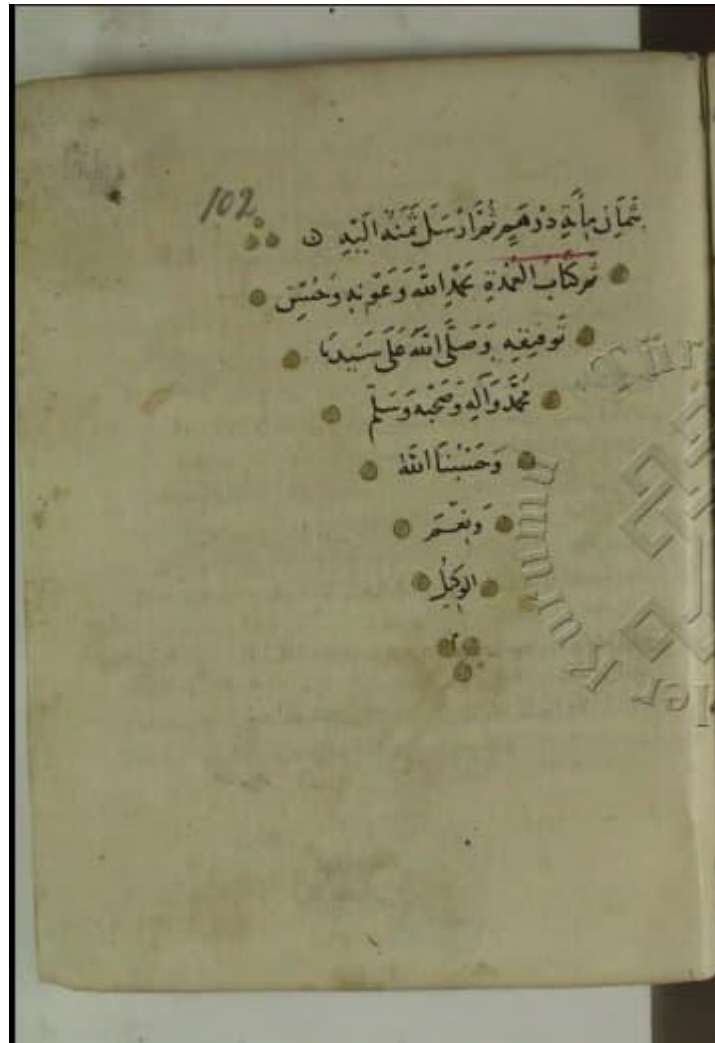 102
بِثَمَانِ مِأَةِ دِرْهَمٍ ثُمَّ أَرْسَلَ ثَمَنَهُ الَيْهِ
تَمَّ كِتَابُ الْعُمْدَةِ بِحَمْدِ اللهِ وَعَوْنِهِ وَحُسْنِ
تَوْفِيقِهِ وَصَلَّى اللهُ عَلَى سَيِّدِنَا
مُحَمَّدٍ وَآلِهِ وَصَحْبِهِ وَسَلَّمَ
وَحَسْبُنَا اللهُ
وَنِعْمَ
الوَكِيلُ